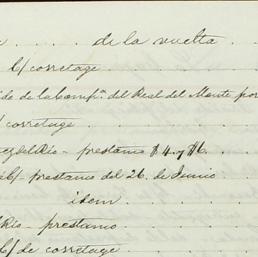 de la vuelta
C/ corretage
de la Comp.ª del Real del Monte por
C/ corretage
del Río — prestamo $4 y $6
C/ — prestamo del 26 de Junio
idem
Río — prestamo
C/ de corretage